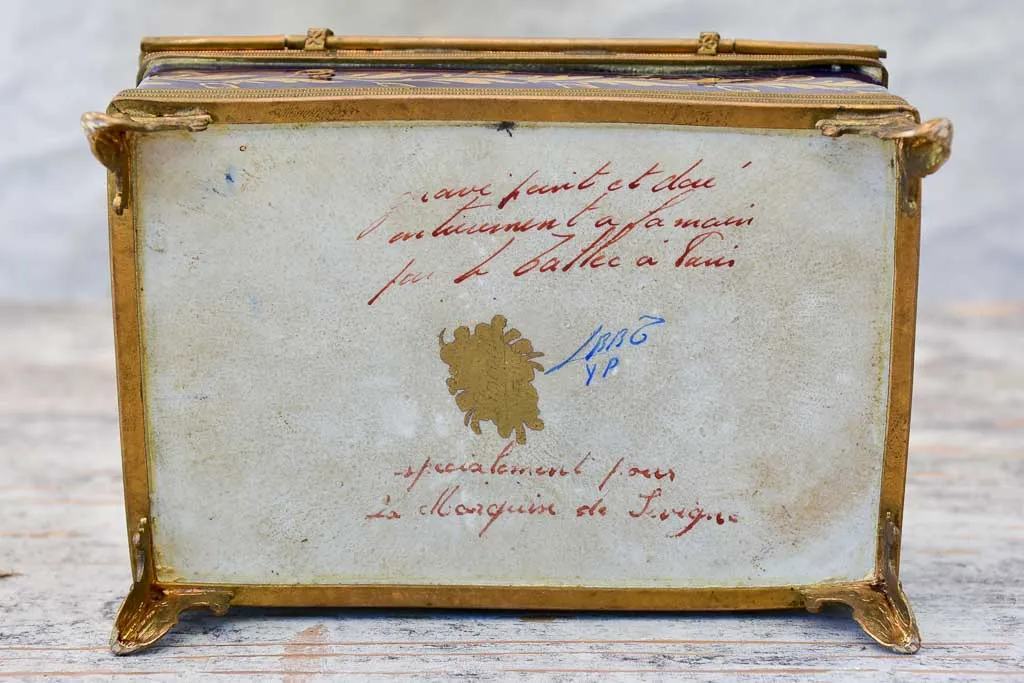 gravé peint et doré
entièrement a la main
par Le Tallec à Paris
YP
spécialement pour
La Marquise de Sévigné